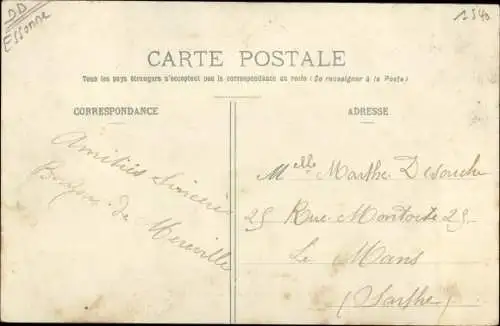 DD
Essonne
1540
CARTE POSTALE
Tous les pays étrangers n'acceptent pas la correspondance au recto (Se renseigner à la Poste)
CORRESPONDANCE
Amitiés sincères
de Merville
ADRESSE
Melle Marthe
25 Rue Montoise 25
Le Mans
(Sarthe)